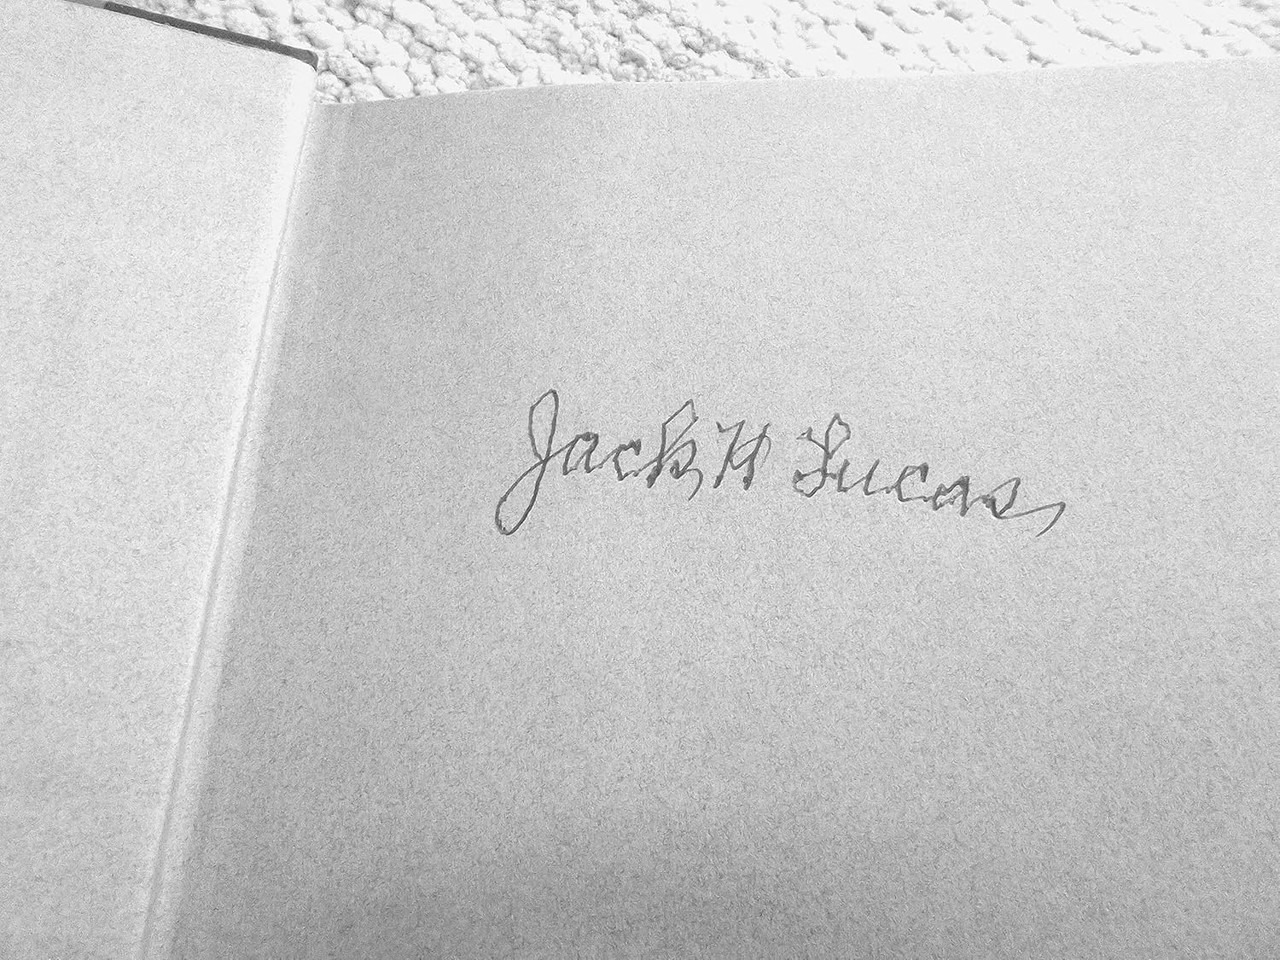 Jack H Lucas